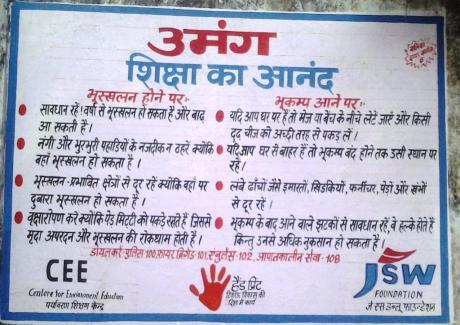 उमंग
शिक्षा का आनंद
भूस्खलन होने पर:-
सावधान रहें! वर्षा से भूस्खलन हो सकता है और बाढ़
आ सकती है।
नंगी और भुरभुरी पहाड़ियों के नजदीक न ठहरें क्योंकि
वहाँ भूस्खलन हो सकता है।
भूस्खलन-प्रभावित क्षेत्रों से दूर रहें क्योंकि वहाँ पर
दुबारा भूस्खलन हो सकता है।
वृक्षारोपण करें क्योंकि पेड़ मिट्टी को पकड़े रहते हैं जिससे
मृदा अपरदन और भूस्खलन की रोकथाम होती है।
भूकम्प आने पर:-
यदि आप घर पर हैं तो मेज या बेंच के नीचे लेट जाएँ और किसी
दृढ़ चीज को अच्छी तरह से पकड़ लें।
यदि आप घर से बाहर हैं तो भूकम्प बंद होने तक उसी स्थान पर
रहें।
लंबे ढाँचों जैसे इमारतों, खिड़कियों, फर्नीचर, पेड़ों और खंभों
से दूर रहें।
भूकम्प के बाद आने वाले झटकों से सावधान रहें, वे हल्के होते हैं
किन्तु उनसे अधिक नुकसान हो सकता है।
डॉयल करें:- पुलिस 100, फायर ब्रिगेड 101, एंबुलेंस-102, आपातकालीन सेवा-108
CEE
Centere for Environment Eduction
पर्यावरण शिक्षण केन्द्र
हैंड प्रिंट
टिकाऊ विकास की
दिशा में कार्य
JSW
FOUNDATION
जे एस डब्लू फाउन्डेशन